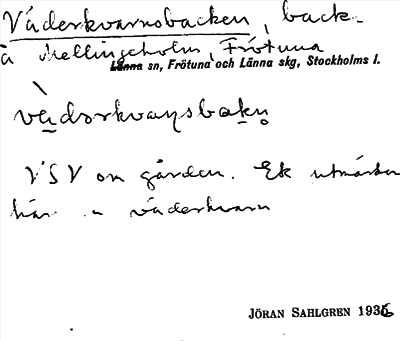 Väderkvarnsbacken, back-
å Mellingeholm, Frötuna
Länna sn, Frötuna och Länna skg, Stockholms l.
VSV om gården. Ek utmärker
här en väderkvarn
JÖRAN SAHLGREN 1936